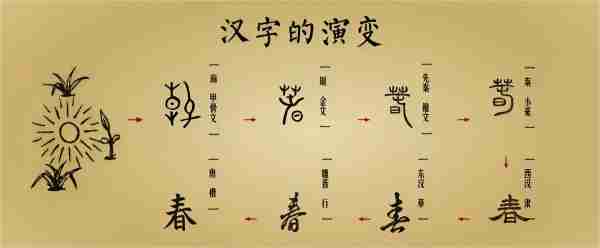 汉字的演变
春
商 甲骨文
春
周 金文
春
先秦 籀文
春
秦 小篆
春
西汉 隶
春
东汉 草
春
魏晋 行
春
唐 楷